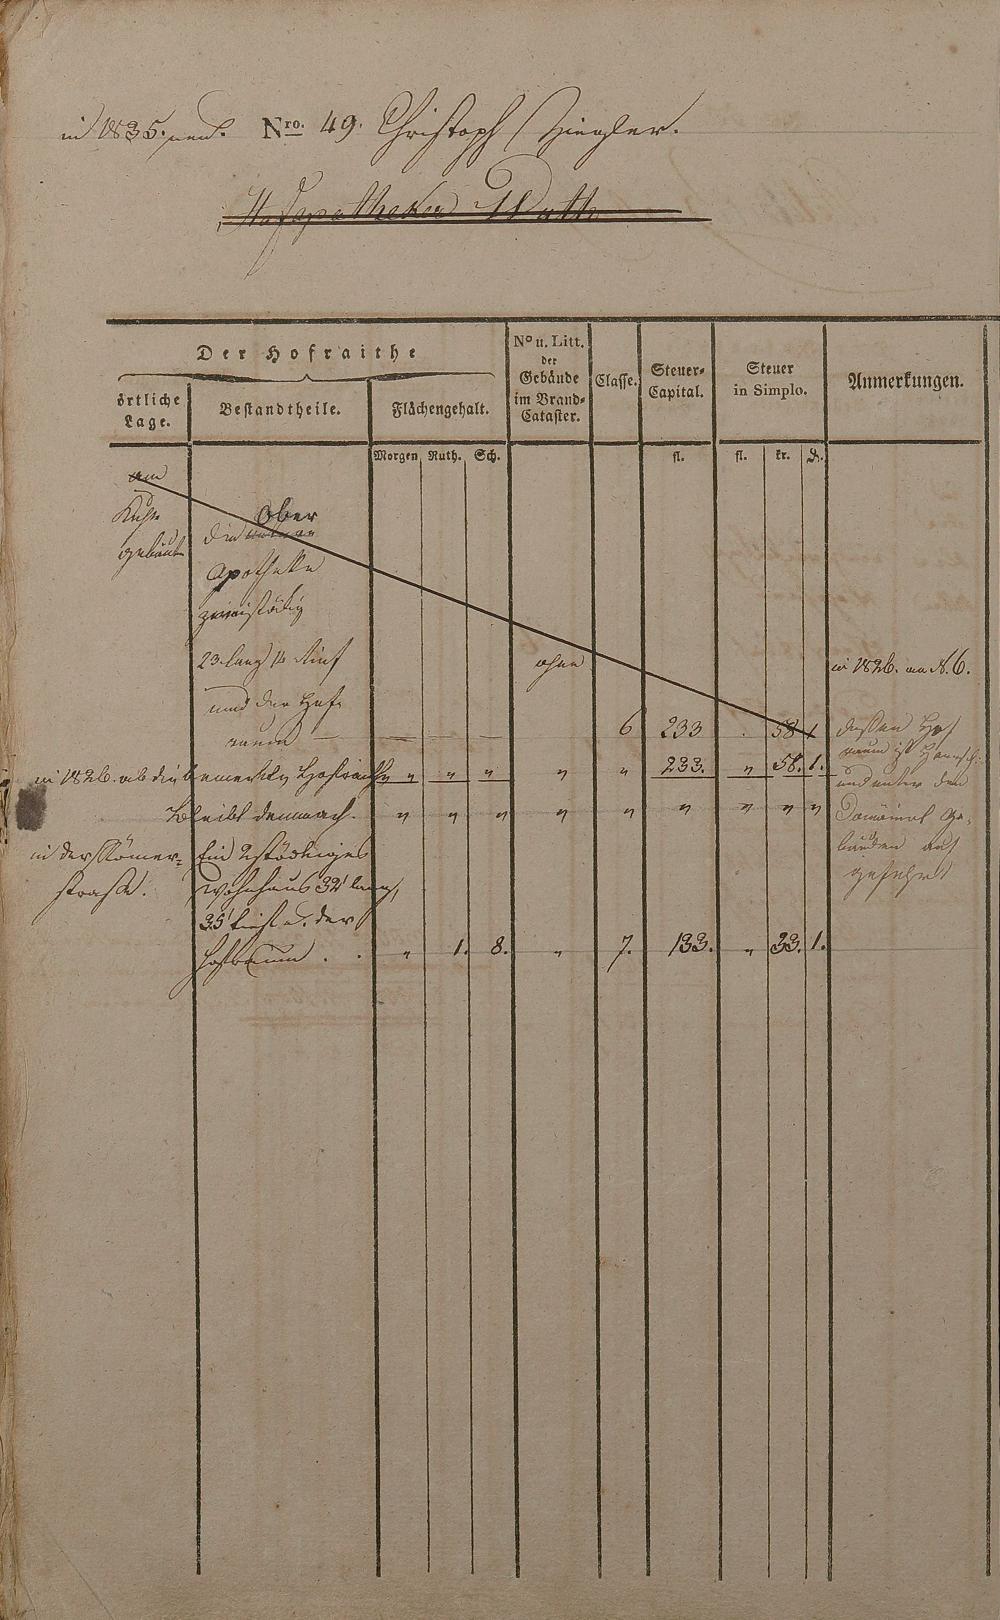 in 1835. neu. Nro. 49. Christoph Ziegler.
Hofapotheker Watth
Der Hofraithe
örtliche Lage.
Bestandtheile.
Flächengehalt.
No u. Litt. der Gebäude im Brand-Cataster.
Classe.
Steuer-Capital.
Steuer in Simplo.
Anmerkungen.
Morgen Ruth. Sch. fl. fl. kr. d.
am
Ober
die untere
Apotheke
zweistöckig
23. lang 14 tief ohne in 1826. an N. 6.
und der Hof-
raum — 6 233 . 58 1 dessen Hof
raum ist Herrsch.
in 1826. ab die bemerkte Hofraithe " " " " " 233. " 58. 1. und unter den
Bleibt demnach. " " " " " " " " " Domänial Ge-
in der Römer- Ein 2stöckiges bäuden auf
straße. Wohnhaus 32' lang, geführt
35' tief u. der
Hofraum . . " 1. 8. " 7. 133. " 33. 1.